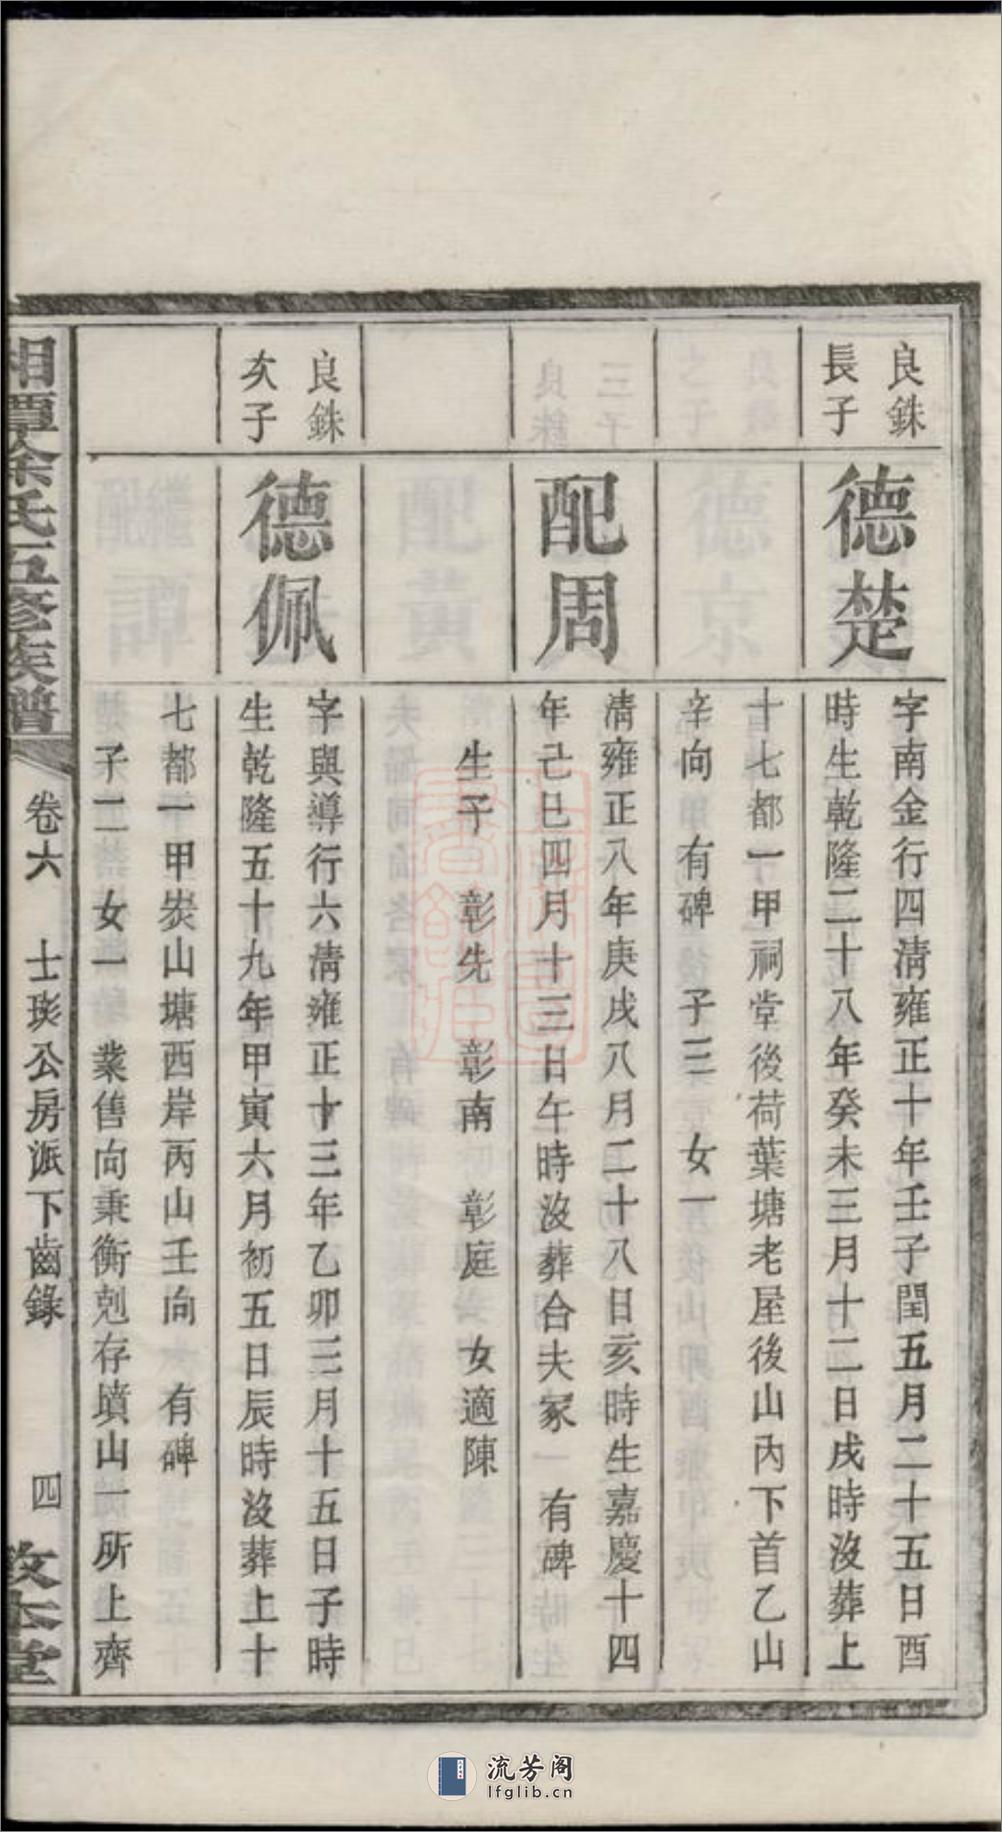 良銖
長子
德楚
字南金行四清雍正十年壬子閏五月二十五日酉
時生乾隆二十八年癸未三月十二日戌時沒葬上
十七都一甲祠堂後荷葉塘老屋後山內下首乙山
辛向 有碑 子三 女一
配周
清雍正八年庚戌八月二十八日亥時生嘉慶十四
年己巳四月十三日午時沒葬合夫冢 有碑
生子 彰先 彰南 彰庭 女適陳
良銖
次子
德佩
字與導行六清雍正十三年乙卯三月十五日子時
生乾隆五十九年甲寅六月初五日辰時沒葬上十
七都一甲炭山塘西岸丙山壬向 有碑
子二 女一 業售向秉衡剋存墳山一所上齊
湘潭徐氏五修族譜
卷六 士琰公房派下齒錄 四
敦本堂
流芳阁
lfglib.cn